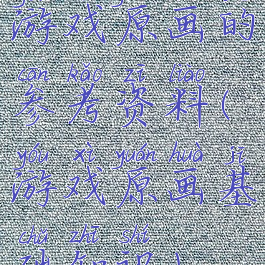 游戏原画的
cān kǎo zī liào
参考资料(
yóu xì yuán huà jī
游戏原画基
chǔ zhī shí